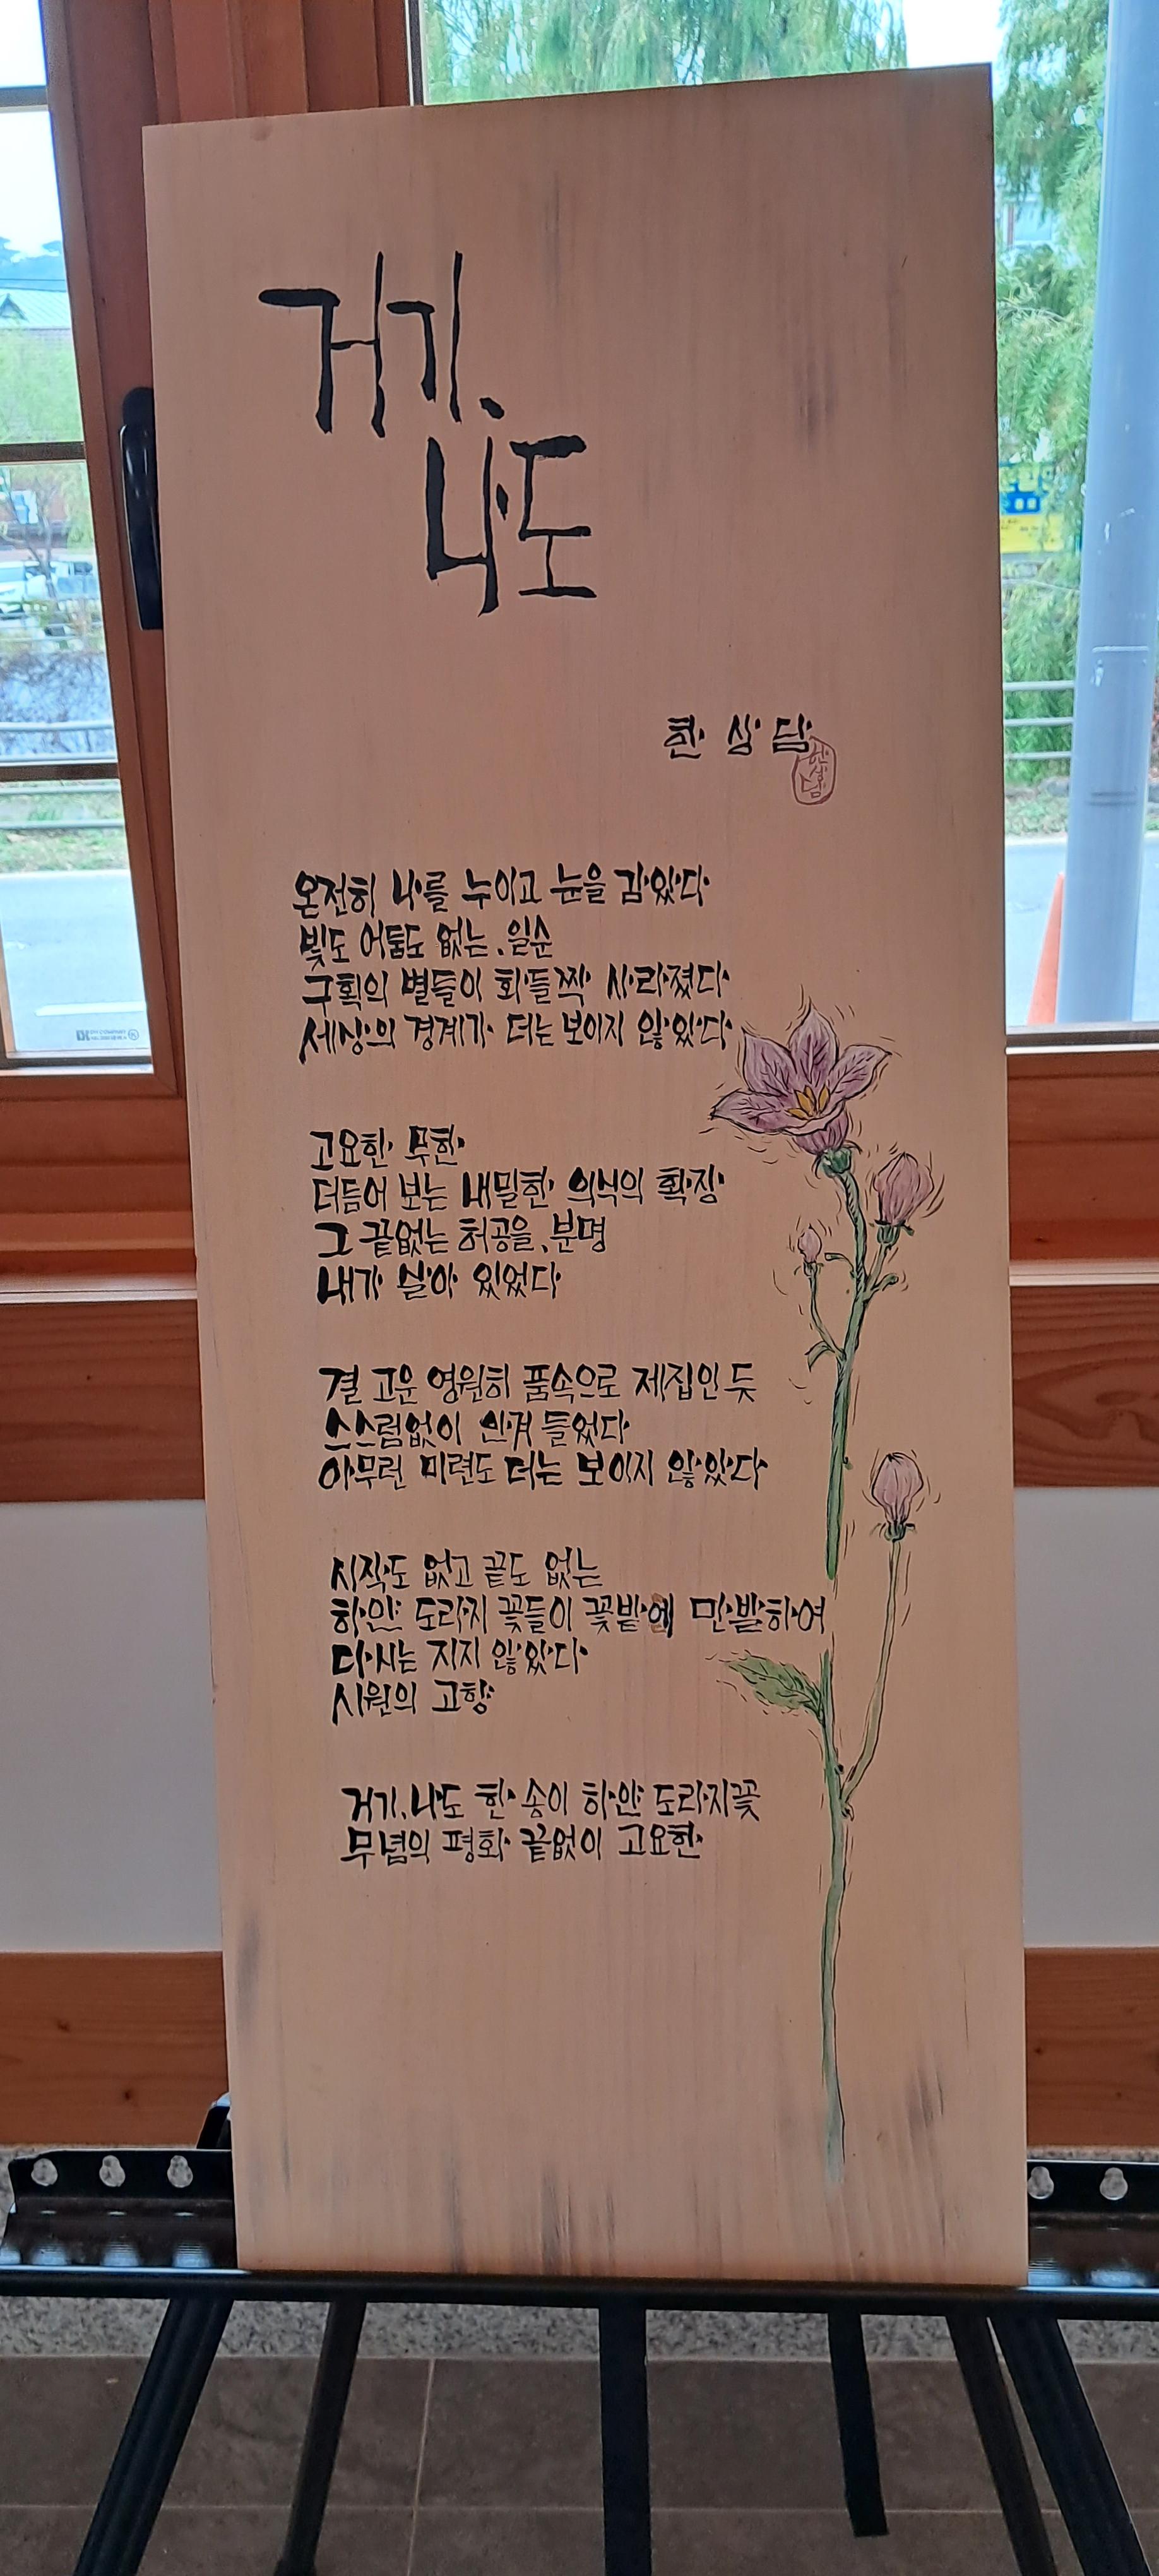 거기、
나도
한 상 담
온전히 나를 누이고 눈을 감았다
빛도 어둠도 없는、일순
구획의 별들이 화들짝 사라졌다
세상의 경계가 더는 보이지 않았다
고요한 무한
더듬어 보는 내밀한 의식의 확장
그 끝없는 허공을、분명
내가 살아 있었다
결 고운 영원히 품속으로 제집인 듯
스스럼없이 안겨 들었다
아무런 미련도 더는 보이지 않았다
시작도 없고 끝도 없는
하얀 도라지 꽃들이 꽃밭에 만발하여
다시는 지지 않았다
시원의 고향
거기、나도 한 송이 하얀 도라지꽃
무념의 평화 끝없이 고요한